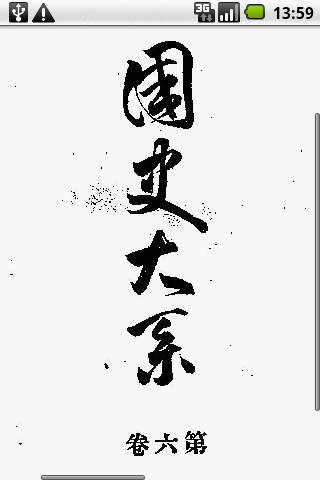 3G 13:59
國史大系
第六卷